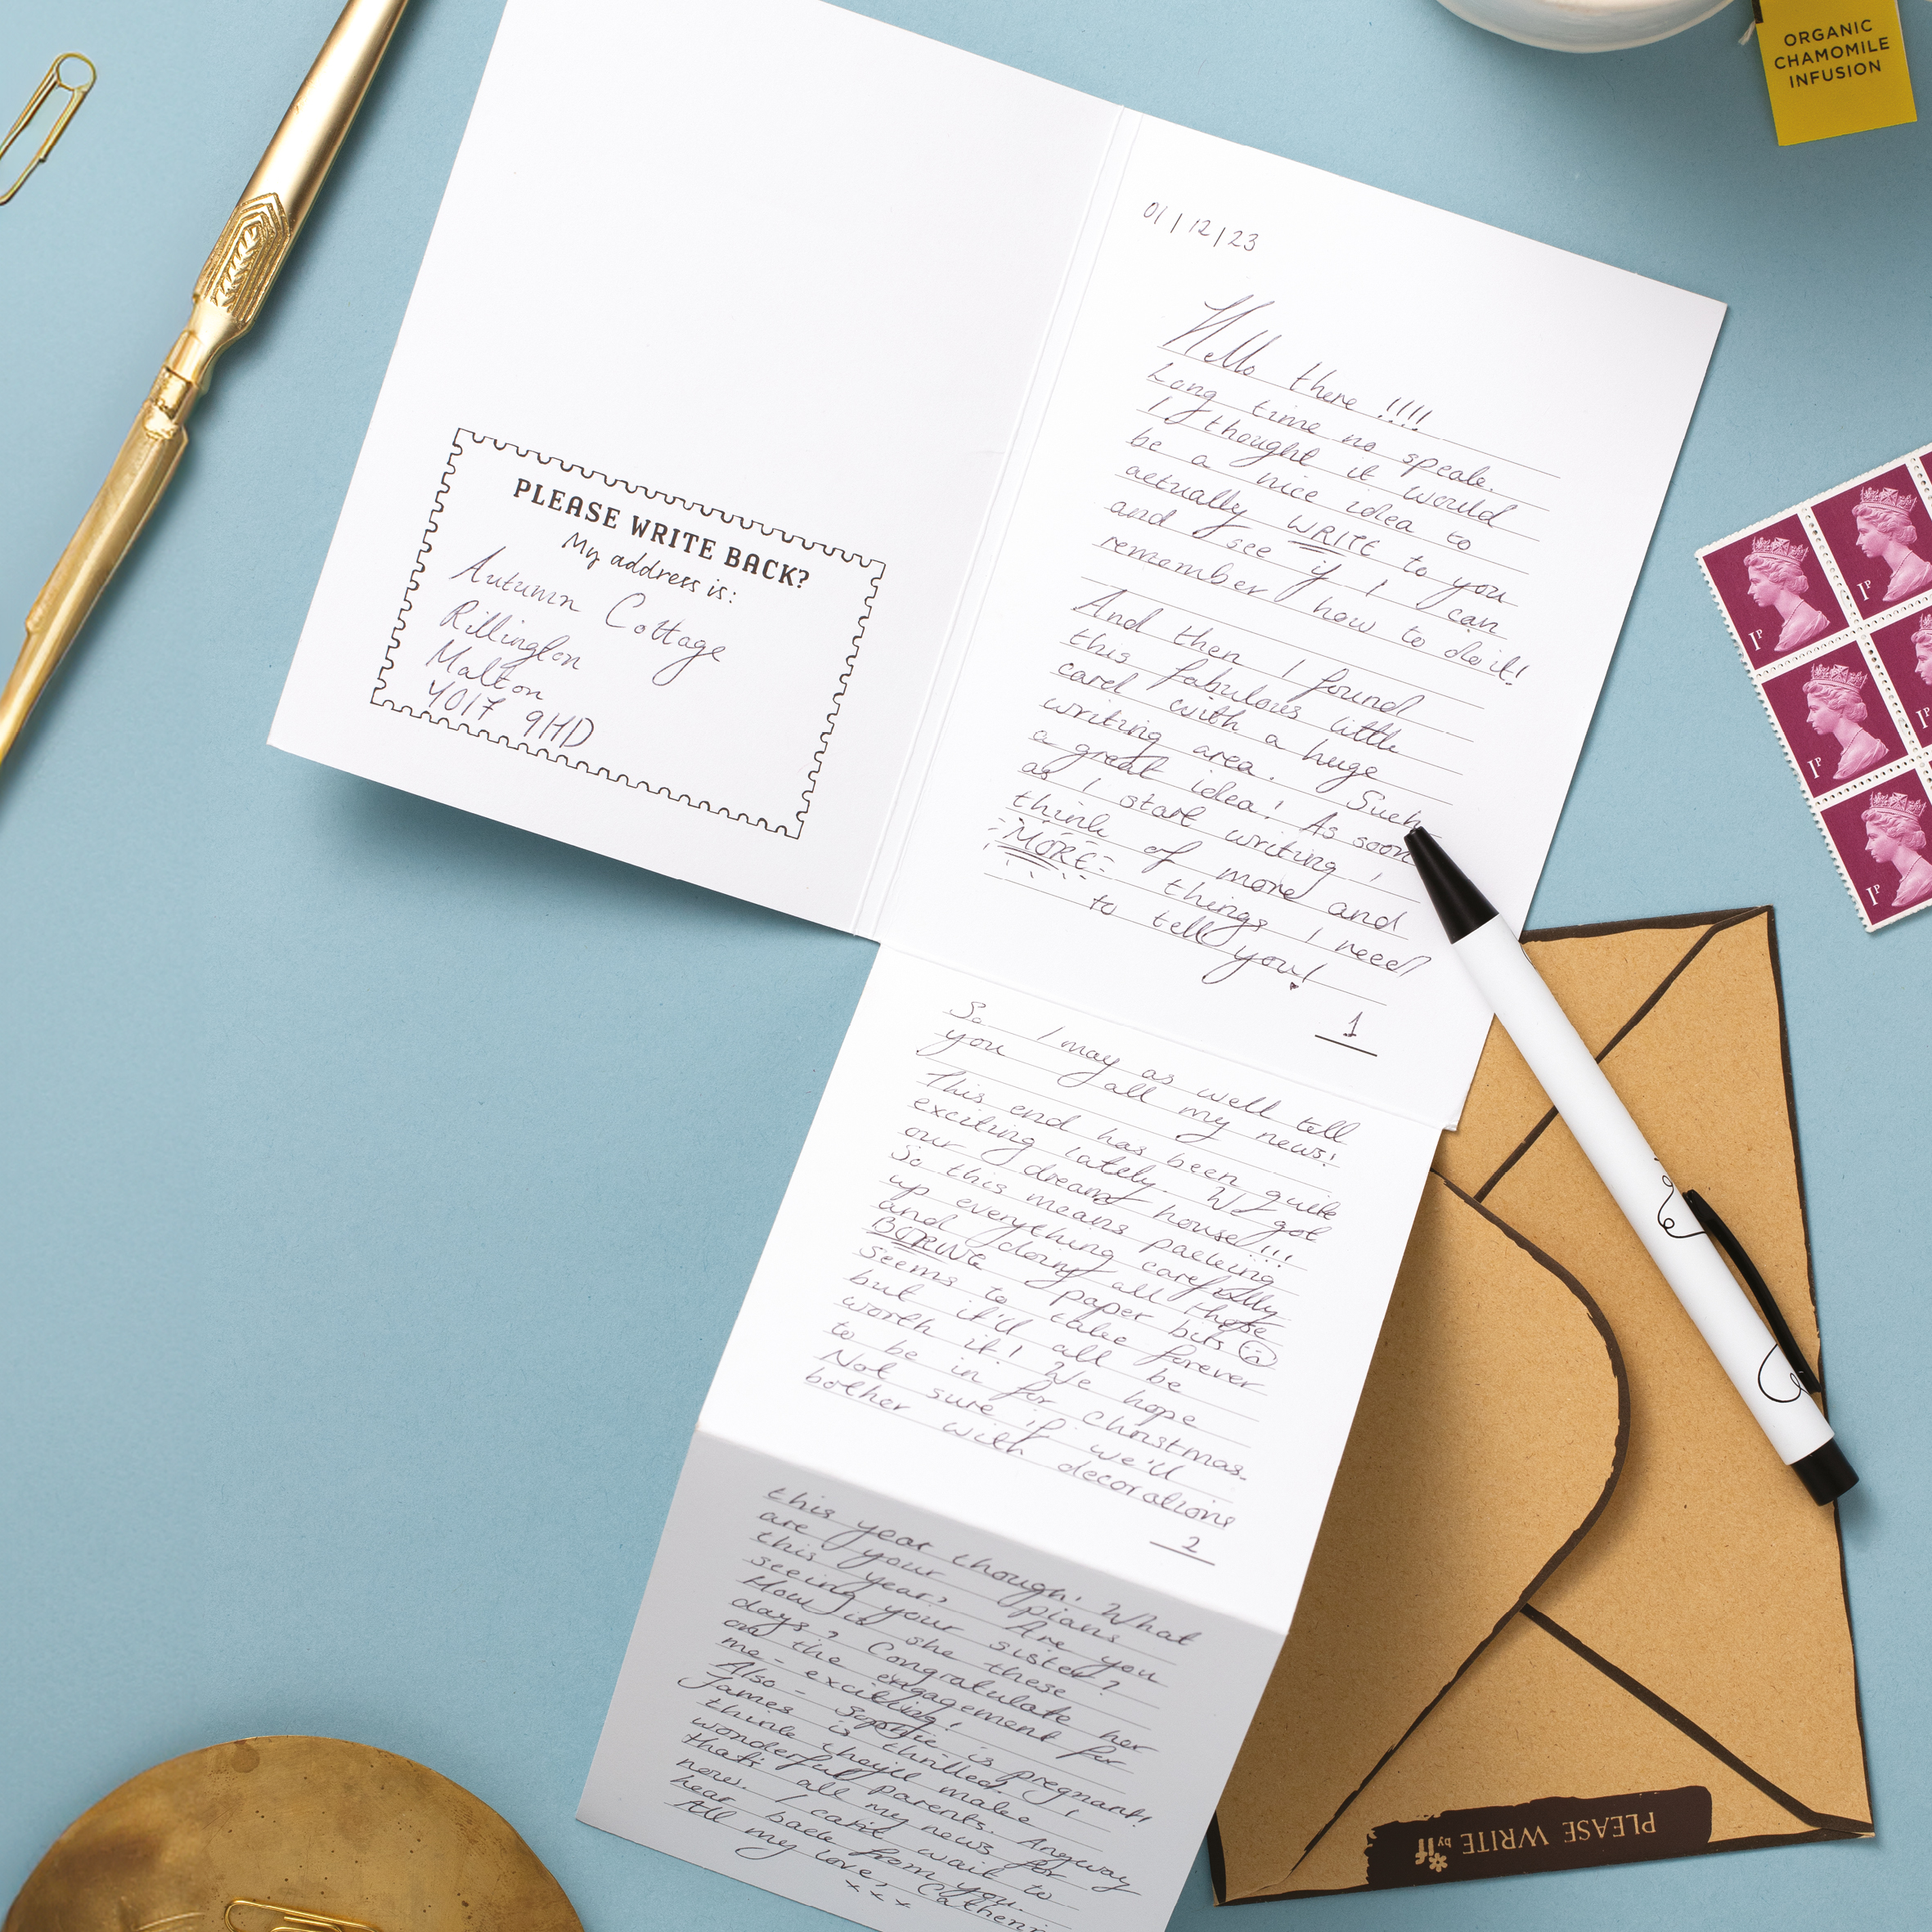 ORGANIC
CHAMOMILE
INFUSION
PLEASE WRITE BACK?
My address is:
Autumn Cottage
Rillington
Malton
YO17 9HD
01/12/23
Hello there !!!!
Long time no speak.
I thought it would
be a nice idea to
actually WRITE to you
and see if I can
remember how to do it!
And then I found
this fabulous little
card with a huge
writing area. Such
a great idea! As soon
as I start writing, I
think of more and
MORE things I need
to tell you!
1
So I may as well tell
you all my news!
This end has been quite
exciting lately. We got
our dream house!!!
So this means packing
up everything carefully
and doing all those
BORING paper bits
seems to take forever
but it'll all be
worth it! We hope
to be in for Christmas.
Not sure if we'll
bother with decorations
2
this year though. What
are your plans
this year? Are you
seeing your sister?
How is she these
days? Congratulate her
on the engagement for
me - exciting!
Also - Sophie is pregnant!
James is thrilled! I
think they'll make
wonderful parents. Anyway
that's all my news for
now. I can't wait to
hear back from you.
All my love,
x x x
1P
1P
1P
1P
1P
1P
PLEASE WRITE by if